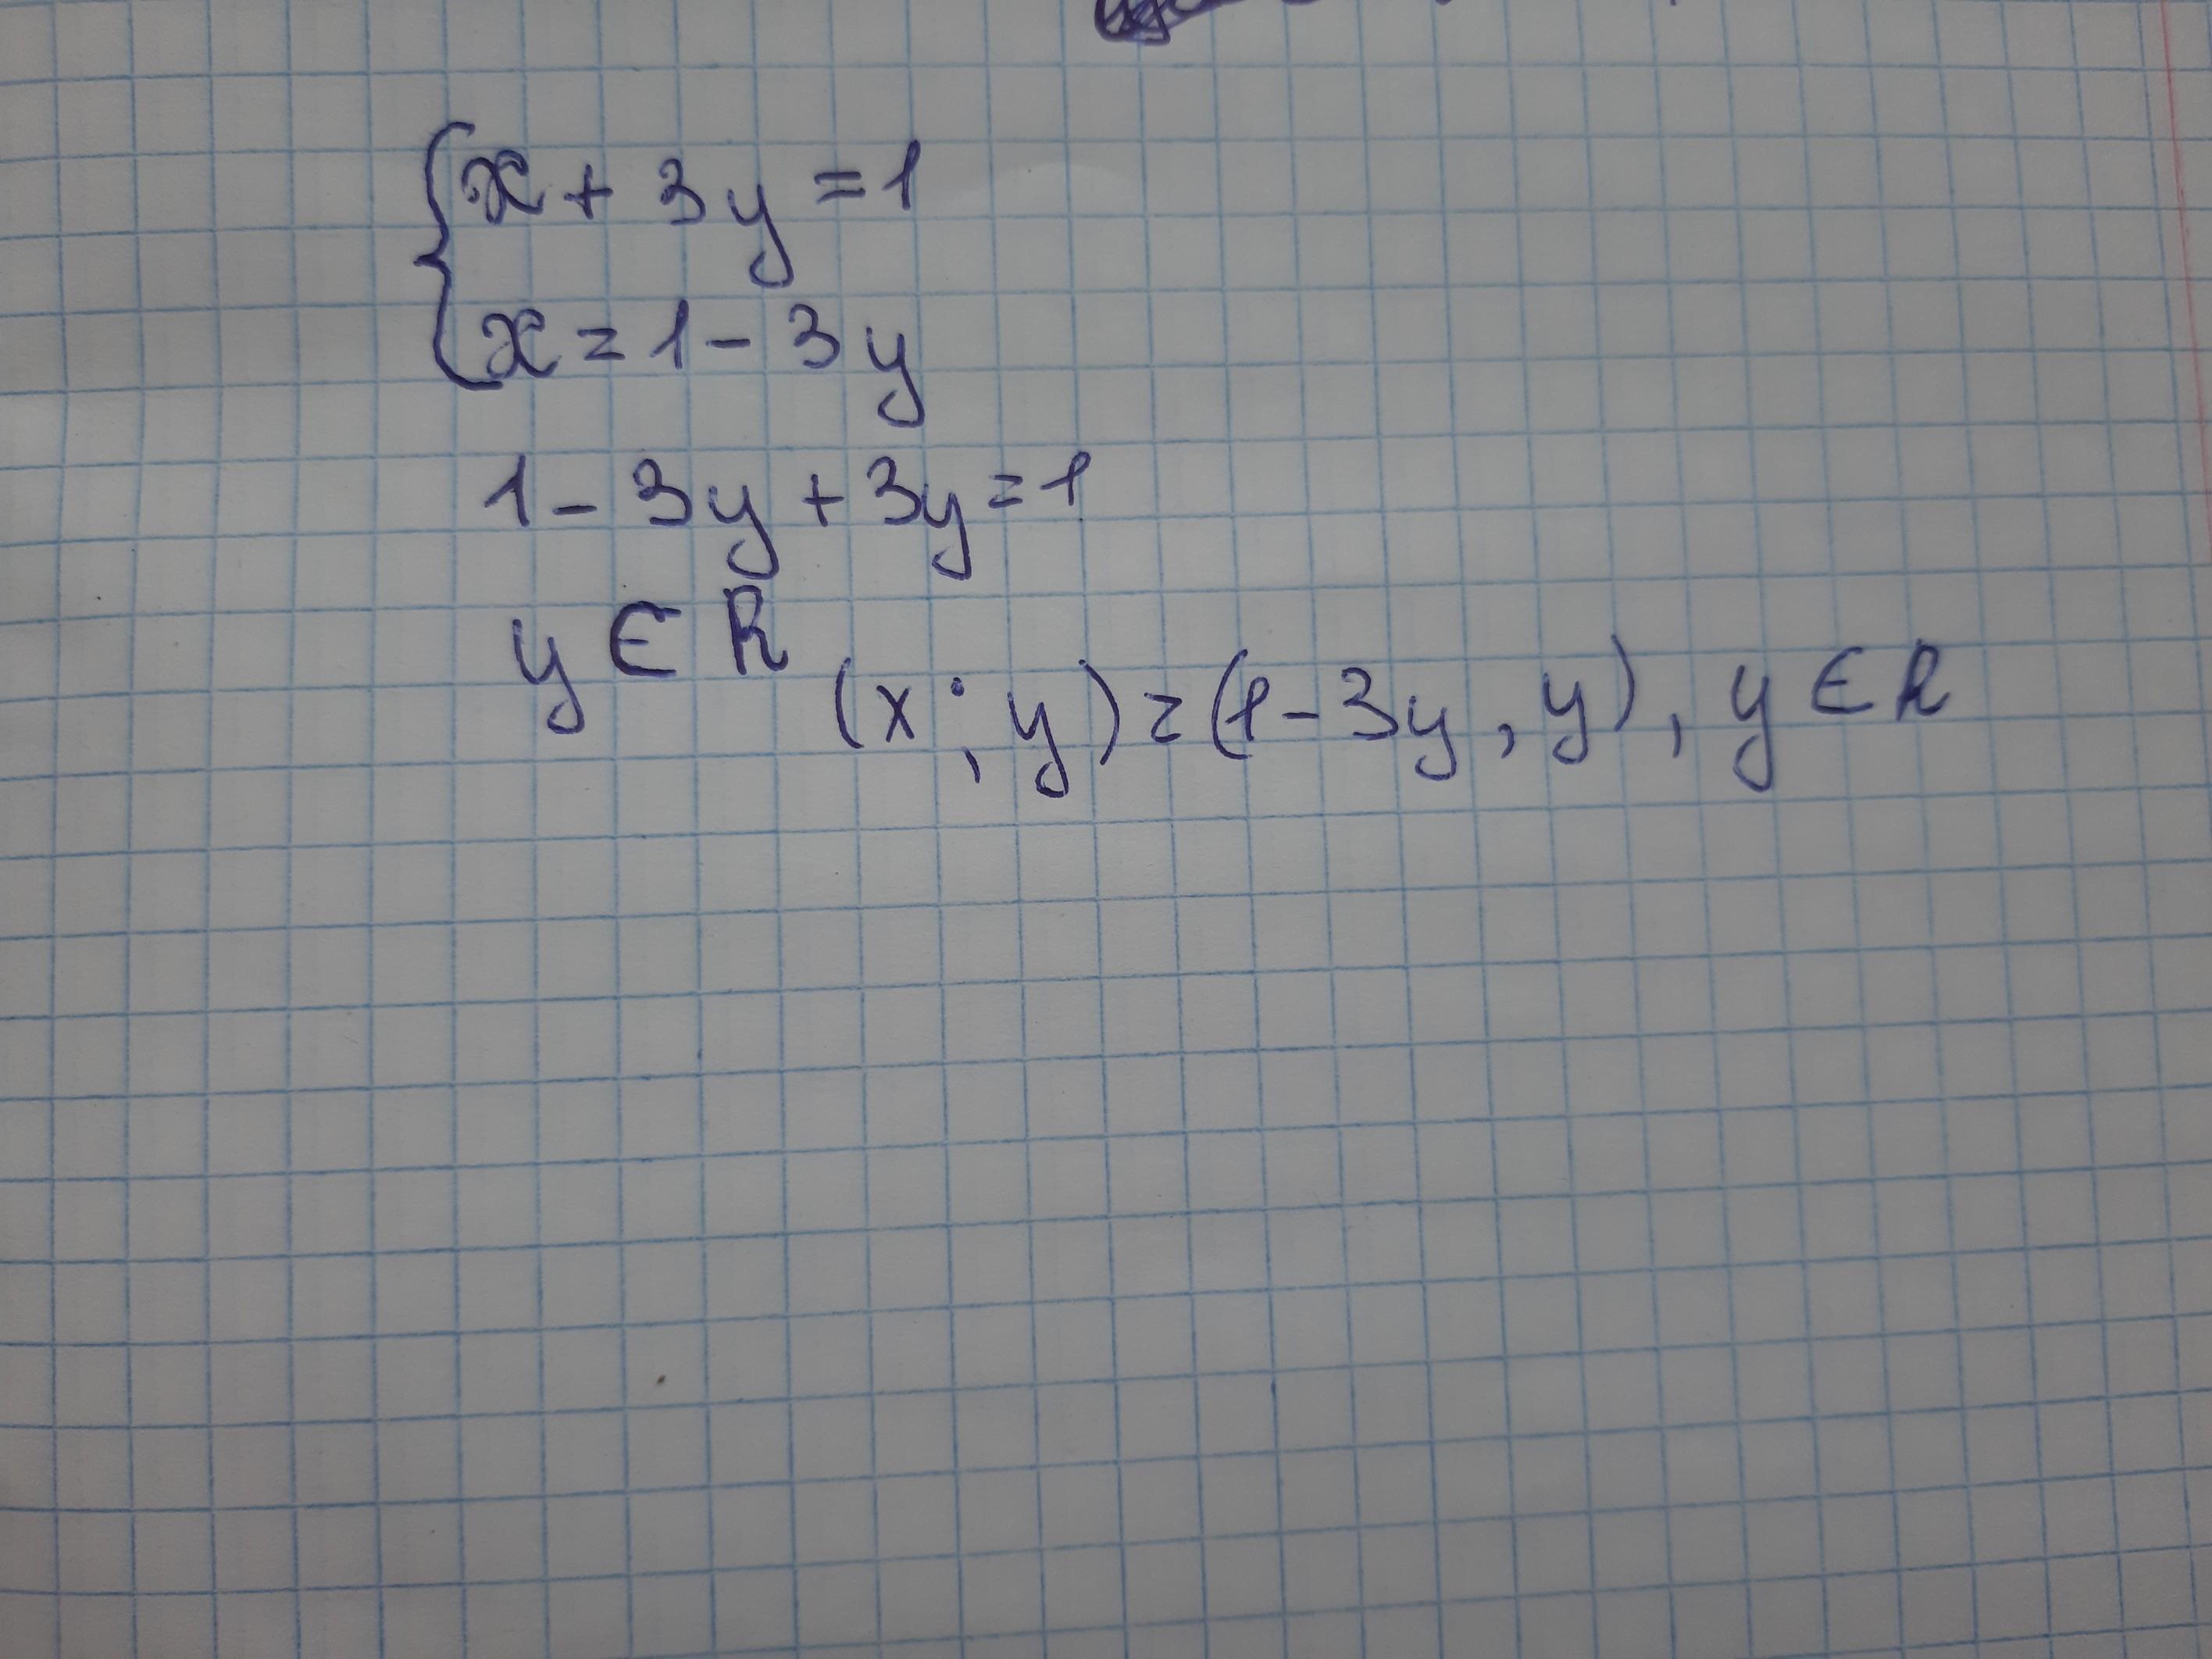 {x + 3y = 1
x = 1 - 3y
1 - 3y + 3y = 1
y ∈ R
(x ; y) = (1 - 3y , y) , y ∈ R